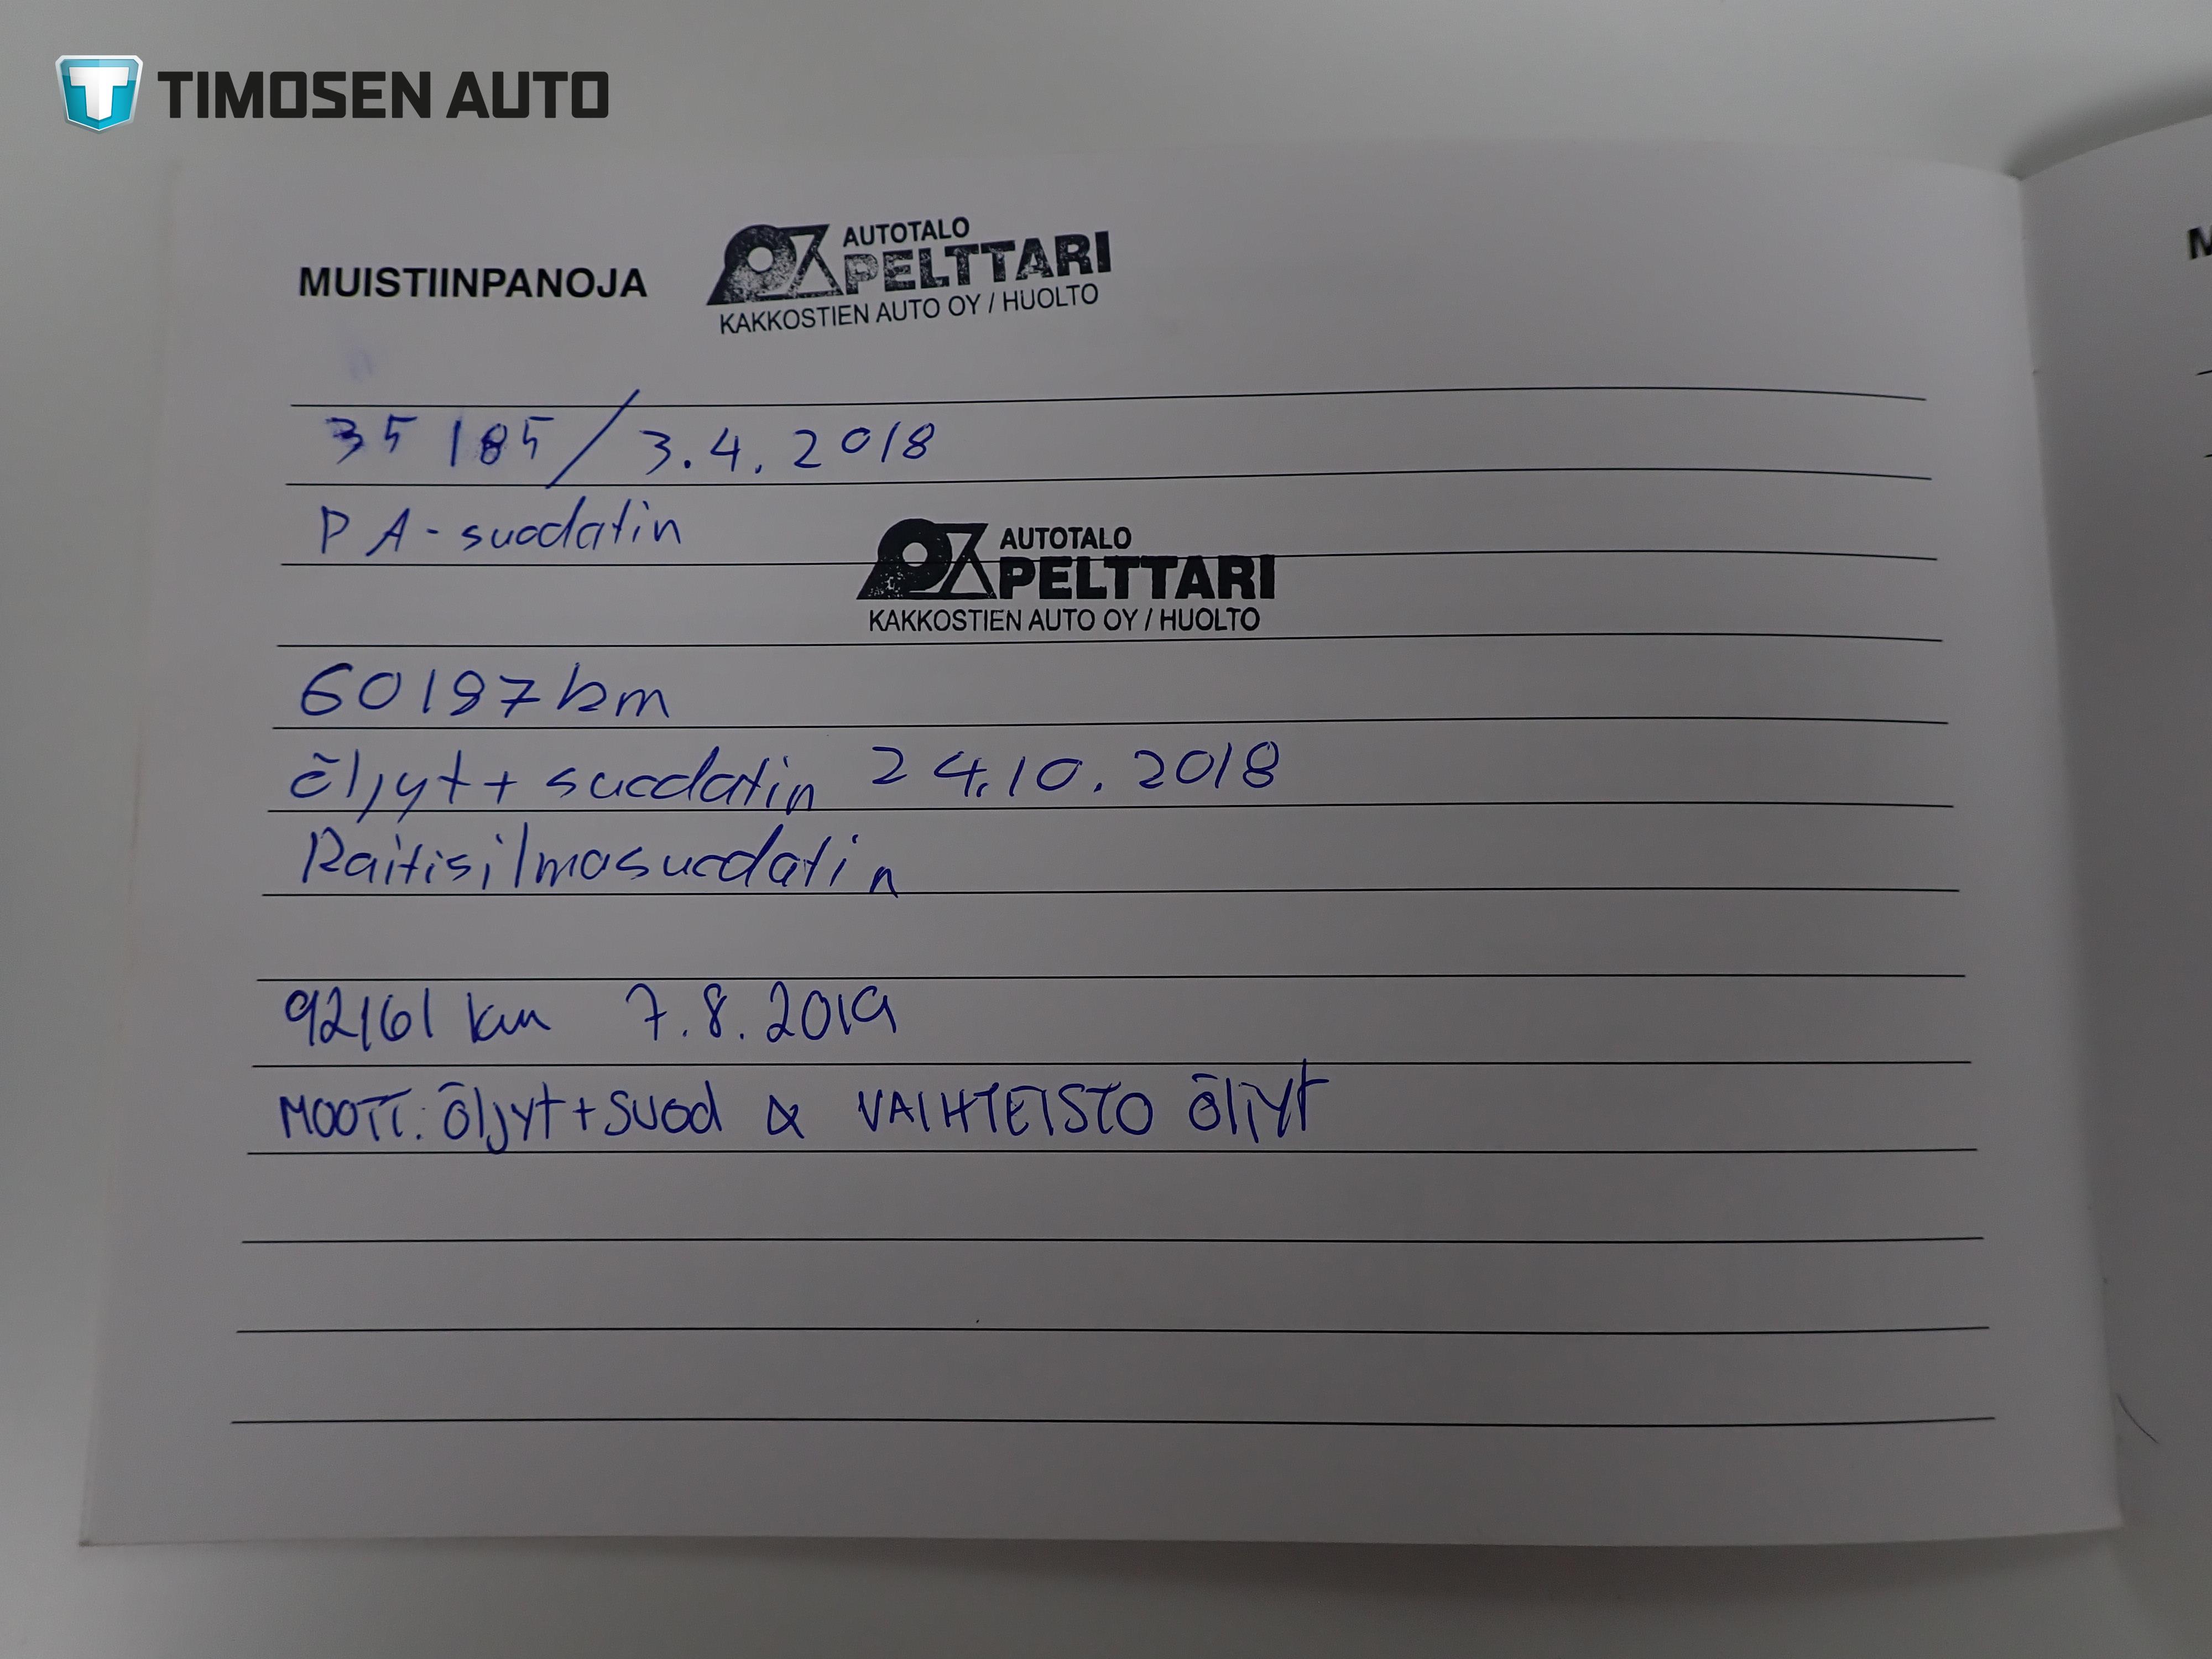 TIMOSEN AUTO
MUISTIINPANOJA
AUTOTALO
PELTTARI
KAKKOSTIEN AUTO OY / HUOLTO
35 185 / 3.4.2018
PA-suodatin
AUTOTALO
PELTTARI
KAKKOSTIEN AUTO OY / HUOLTO
60197km
öljyt + suodatin 24.10.2018
Raitisilmasuodatin
92161 km 7.8.2019
MOOTT. öljyt + suod & VAIHTEISTO öljyt